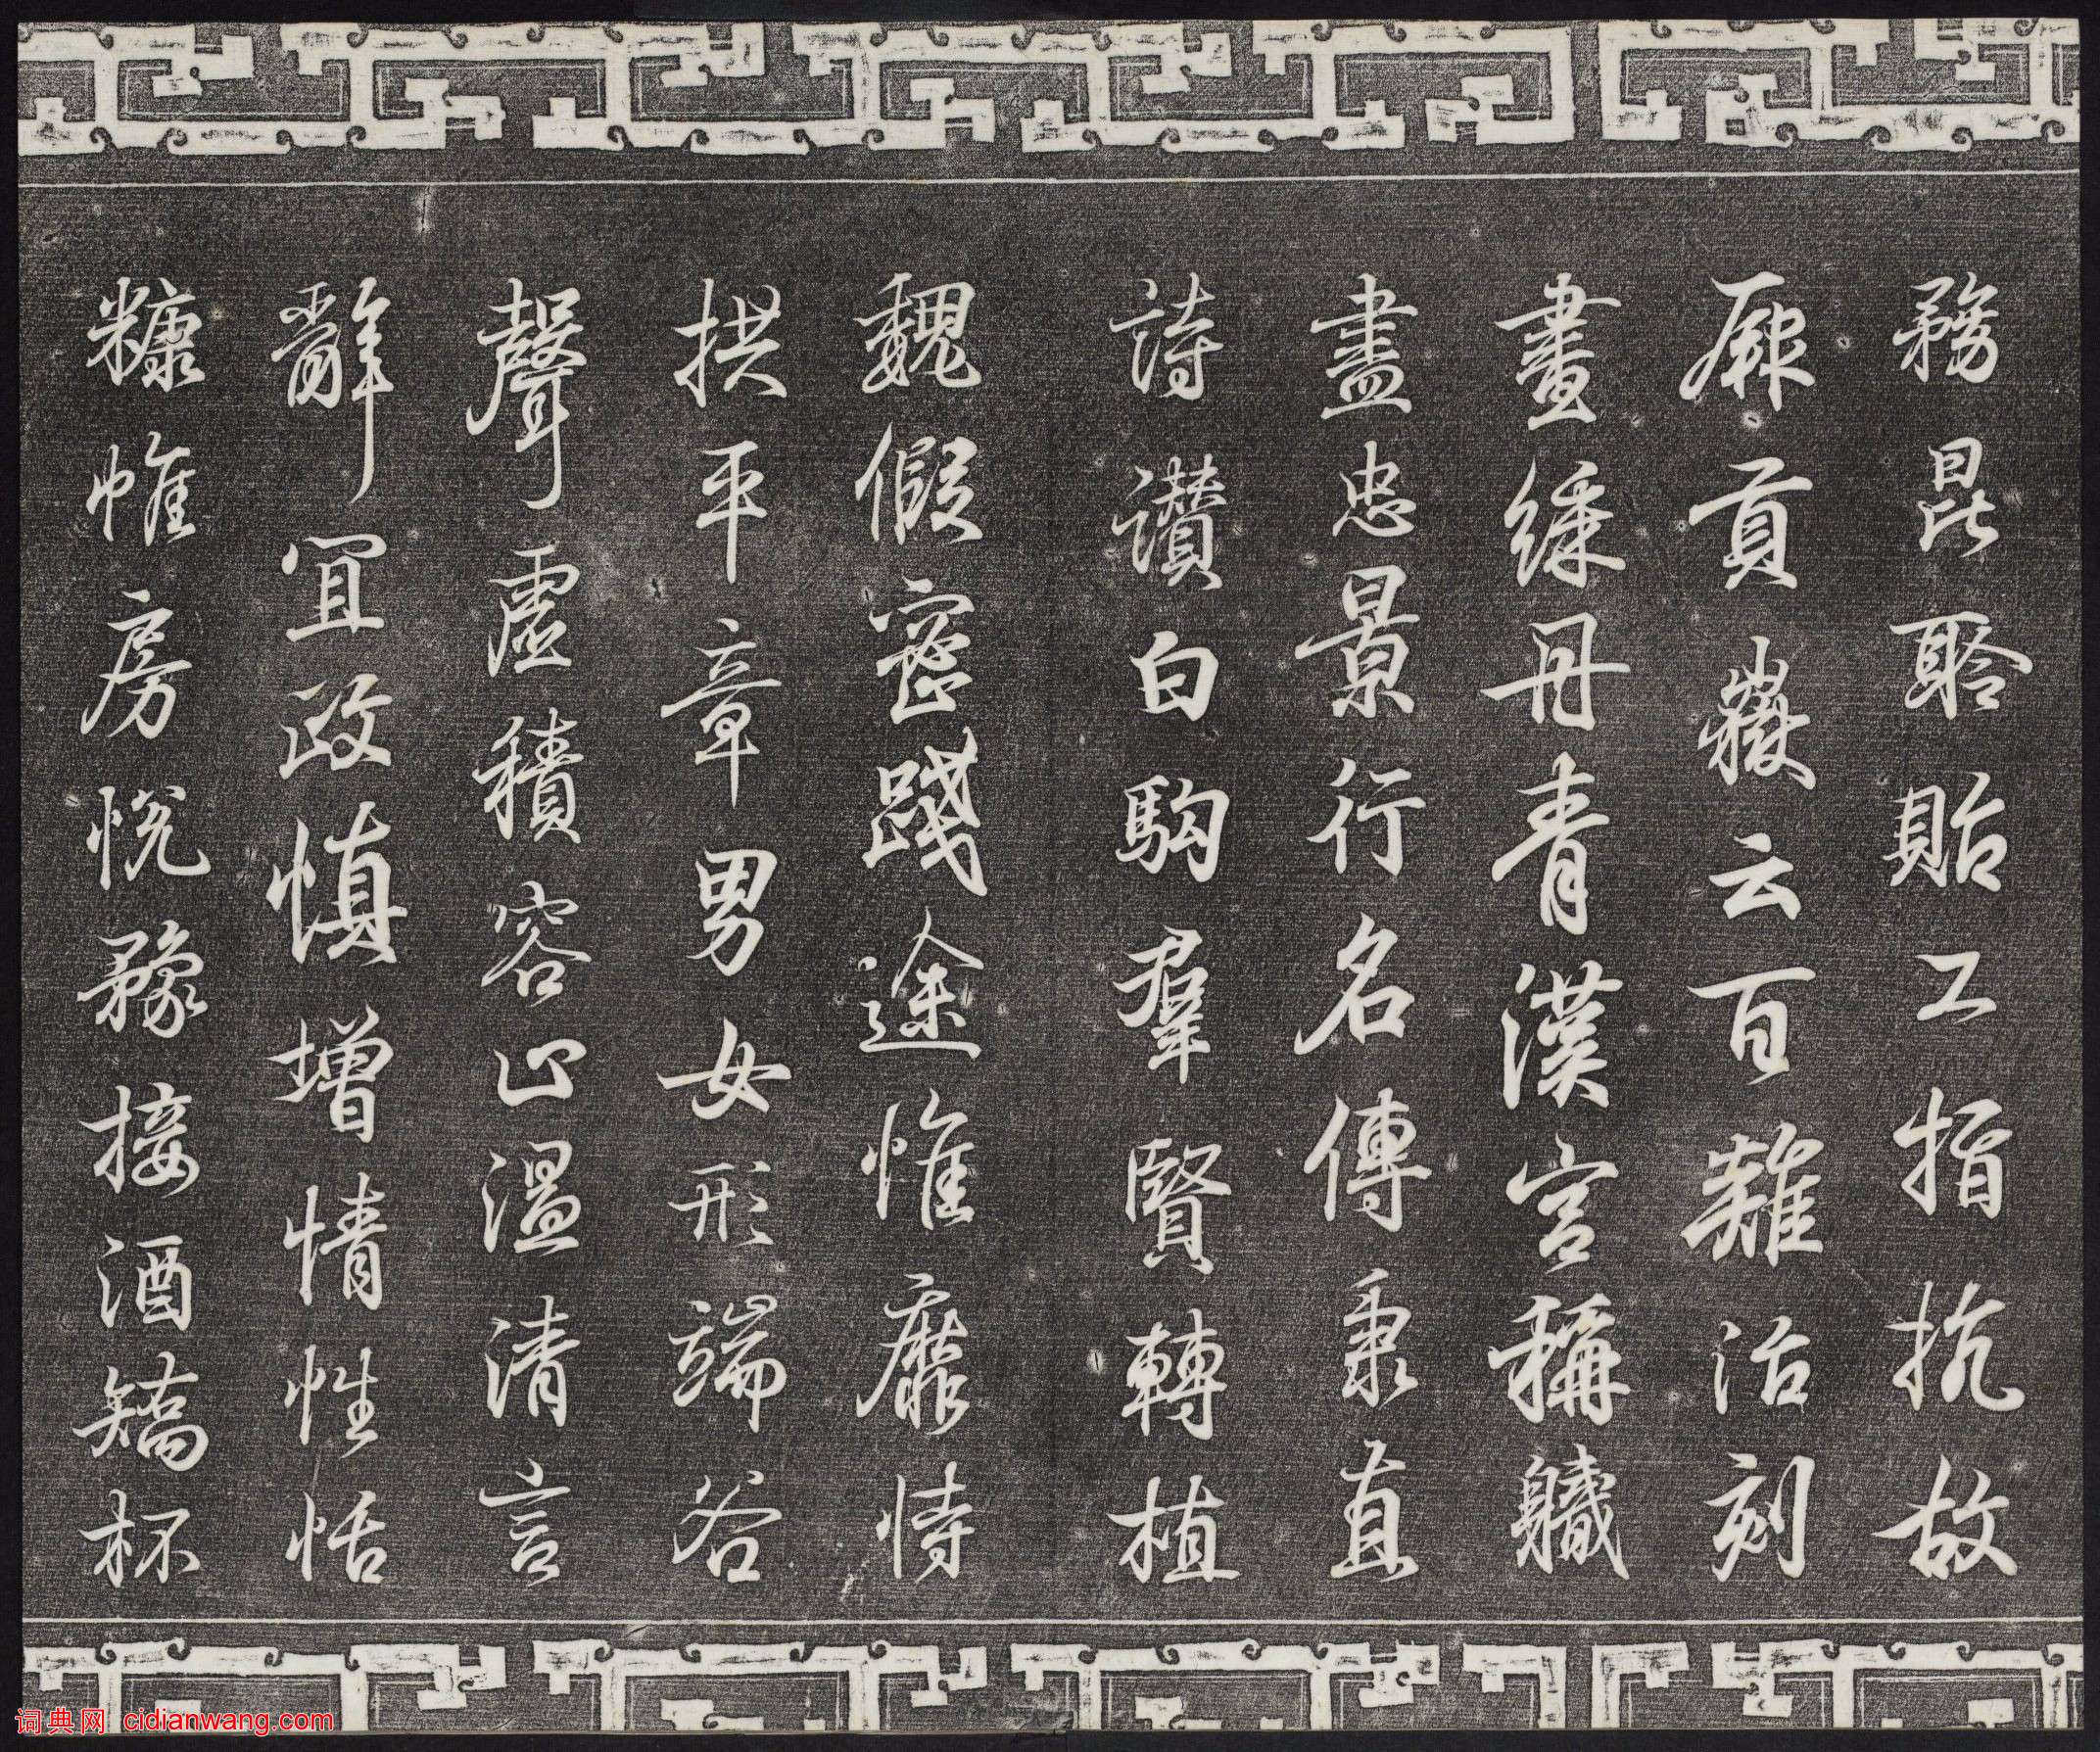 務昆聆貽工指抗故
厥貢嶽云百難治刻
畫綵丹青漢宮稱軄
盡忠景行名傳秉直
詩讚白駒羣賢轉植
魏假密踐途惟靡恃
拱平章男女形端谷
聲虛積容止溫清言
辭宜政慎增情性恬
糠帷房悅豫接酒矯杯
词典网 cidianwang.com